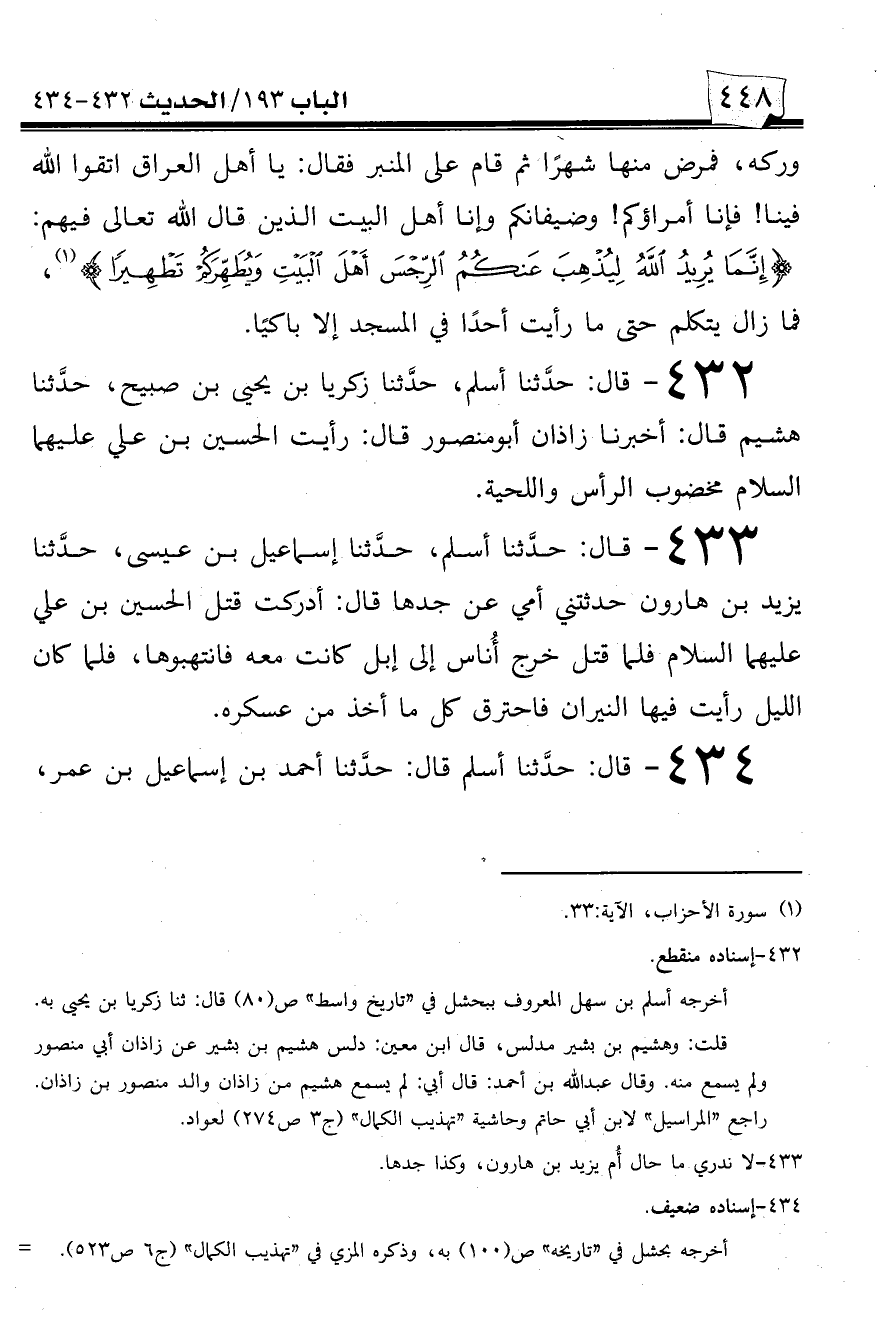 ٤٤٨ الباب ١٩٣/الحديث ٤٣٢-٤٣٤
وركه، فمرض منها شهرًا ثم قام على المنبر فقال: يا أهل العراق اتقوا الله
فينا! فإنا أمراؤكم! وضيفانكم وإنا أهل البيت الذين قال الله تعالى فيهم:
﴿إِنَّمَا يُرِيدُ ٱللَّهُ لِيُذْهِبَ عَنكُمُ ٱلرِّجْسَ أَهْلَ ٱلْبَيْتِ وَيُطَهِّرَكُمْ تَطْهِيرًا﴾(١)،
فما زال يتكلم حتى ما رأيت أحدًا في المسجد إلا باكيًا.
٤٣٢- قال: حدَّثنا أسلم، حدَّثنا زكريا بن يحيى بن صبيح، حدَّثنا
هشيم قال: أخبرنا زاذان أبومنصور قال: رأيت الحسين بن علي عليهما
السلام مخضوب الرأس واللحية.
٤٣٣- قال: حدَّثنا أسلم، حدَّثنا إسماعيل بن عيسى، حدَّثنا
يزيد بن هارون حدثتني أمي عن جدها قال: أدركت قتل الحسين بن علي
عليهما السلام فلما قتل خرج أُناس إلى إبل كانت معه فانتهبوها، فلما كان
الليل رأيت فيها النيران فاحترق كل ما أخذ من عسكره.
٤٣٤- قال: حدَّثنا أسلم قال: حدَّثنا أحمد بن إسماعيل بن عمر،
(١) سورة الأحزاب، الآية:٣٣.
٤٣٢-إسناده منقطع.
أخرجه أسلم بن سهل المعروف ببحشل في «تاريخ واسط» ص(٨٠) قال: ثنا زكريا بن يحيى به.
قلت: وهشيم بن بشير مدلس، قال ابن معين: دلس هشيم بن بشير عن زاذان أبي منصور
ولم يسمع منه. وقال عبدالله بن أحمد: قال أبي: لم يسمع هشيم من زاذان والد منصور بن زاذان.
راجع «المراسيل» لابن أبي حاتم وحاشية «تهذيب الكمال» (ج٣ ص٢٧٤) لعواد.
٤٣٣-لا ندري ما حال أُم يزيد بن هارون، وكذا جدها.
٤٣٤-إسناده ضعيف.
أخرجه بحشل في «تاريخه» ص(١٠٠) به، وذكره المزي في «تهذيب الكمال» (ج٦ ص٥٢٣). =